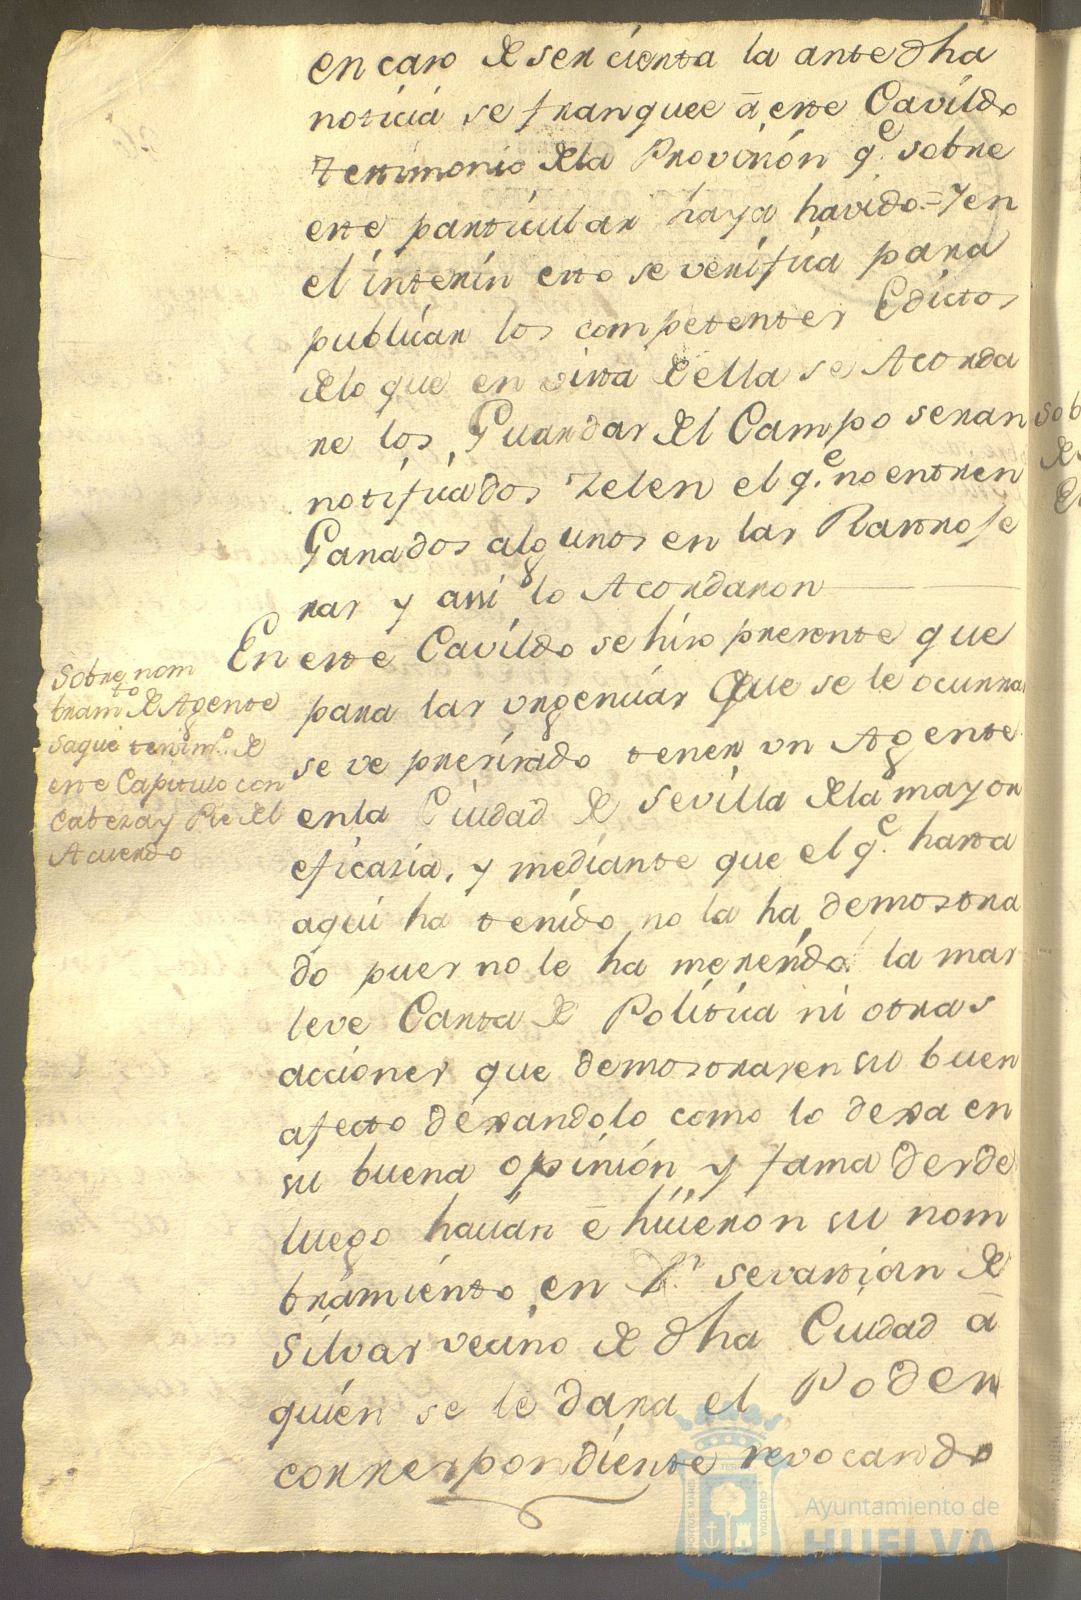 en caso de ser cierta la antedha
noticia se franquee â este Cavildo
testimonio dela Provision q.e sobre
este particular haya havido = Y en
el interin esto se verifica para
publicar los competentes Edictos
delo que en vista de ella se Acorda
re los Guardas del Campo seran
notificados Zelen el q.e no entren
Ganados algunos en las Rastroje
ras y assi lo Acordaron
En este Cavildo se hiso presente que
para las vrgencias que se le ocurra
se ve presisado tener vn Agente
enla Ciudad de Sevilla dela mayor
eficasia, y mediante que el q.e hasta
aqui ha tenido no la ha demostra
do pues no le ha meresido la mas
leve Carta de Politica ni otras
acciones que demostrasen su buen
afecto dexandolo como lo dexa en
su buena opinion y fama desde
luego hacian ê hicieron su nom
bramiento en D.n Sevastian de
Silvas vecino de dha Ciudad â
quien se le dara el Poder
correspondiente revocando
Sobre nom
bram.to de Agente
Saque testim.o de
este Capitulo con
Cabesa y Pie del
Acuerdo
Ayuntamiento de
HUELVA
PORTUS MARIS
CUSTODIA